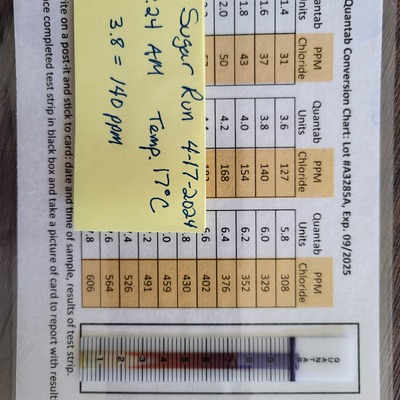 Quantab Conversion Chart: Lot #A3285A, Exp. 09/2025
Quantab Units PPM Chloride Quantab Units PPM Chloride Quantab Units PPM Chloride
1.4 31 3.6 127 5.8 308
1.6 37 3.8 140 6.0 329
1.8 43 4.0 154 6.2 352
2.0 50 4.2 168 6.4 376
.6 402
.8 430
.0 459
.2 491
.4 526
.6 564
.8 606
Sugar Run 4-17-2024
:24 AM Temp. 17°C
3.8 = 140 ppm
QUANTAB
ite on a post-it and stick to card: date and time of sample, results of test strip.
nce completed test strip in black box and take a picture of card to report with result